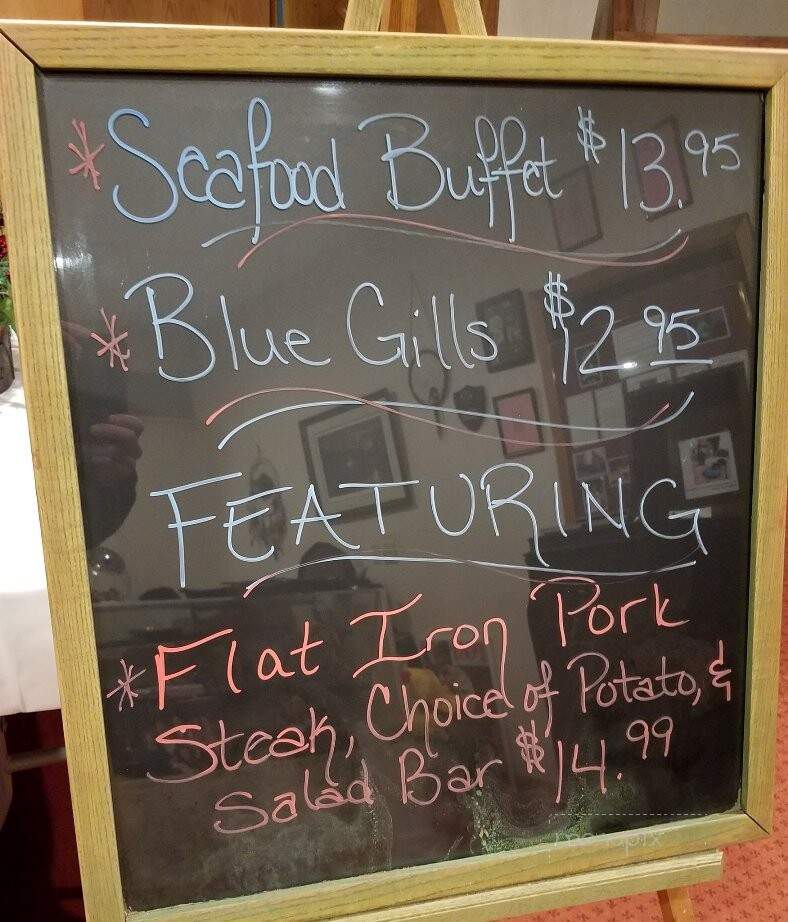 * Seafood Buffet $13.95
* Blue Gills $12.95
FEATURING
* Flat Iron Pork
Steak, Choice of Potato, &
Salad Bar $14.99